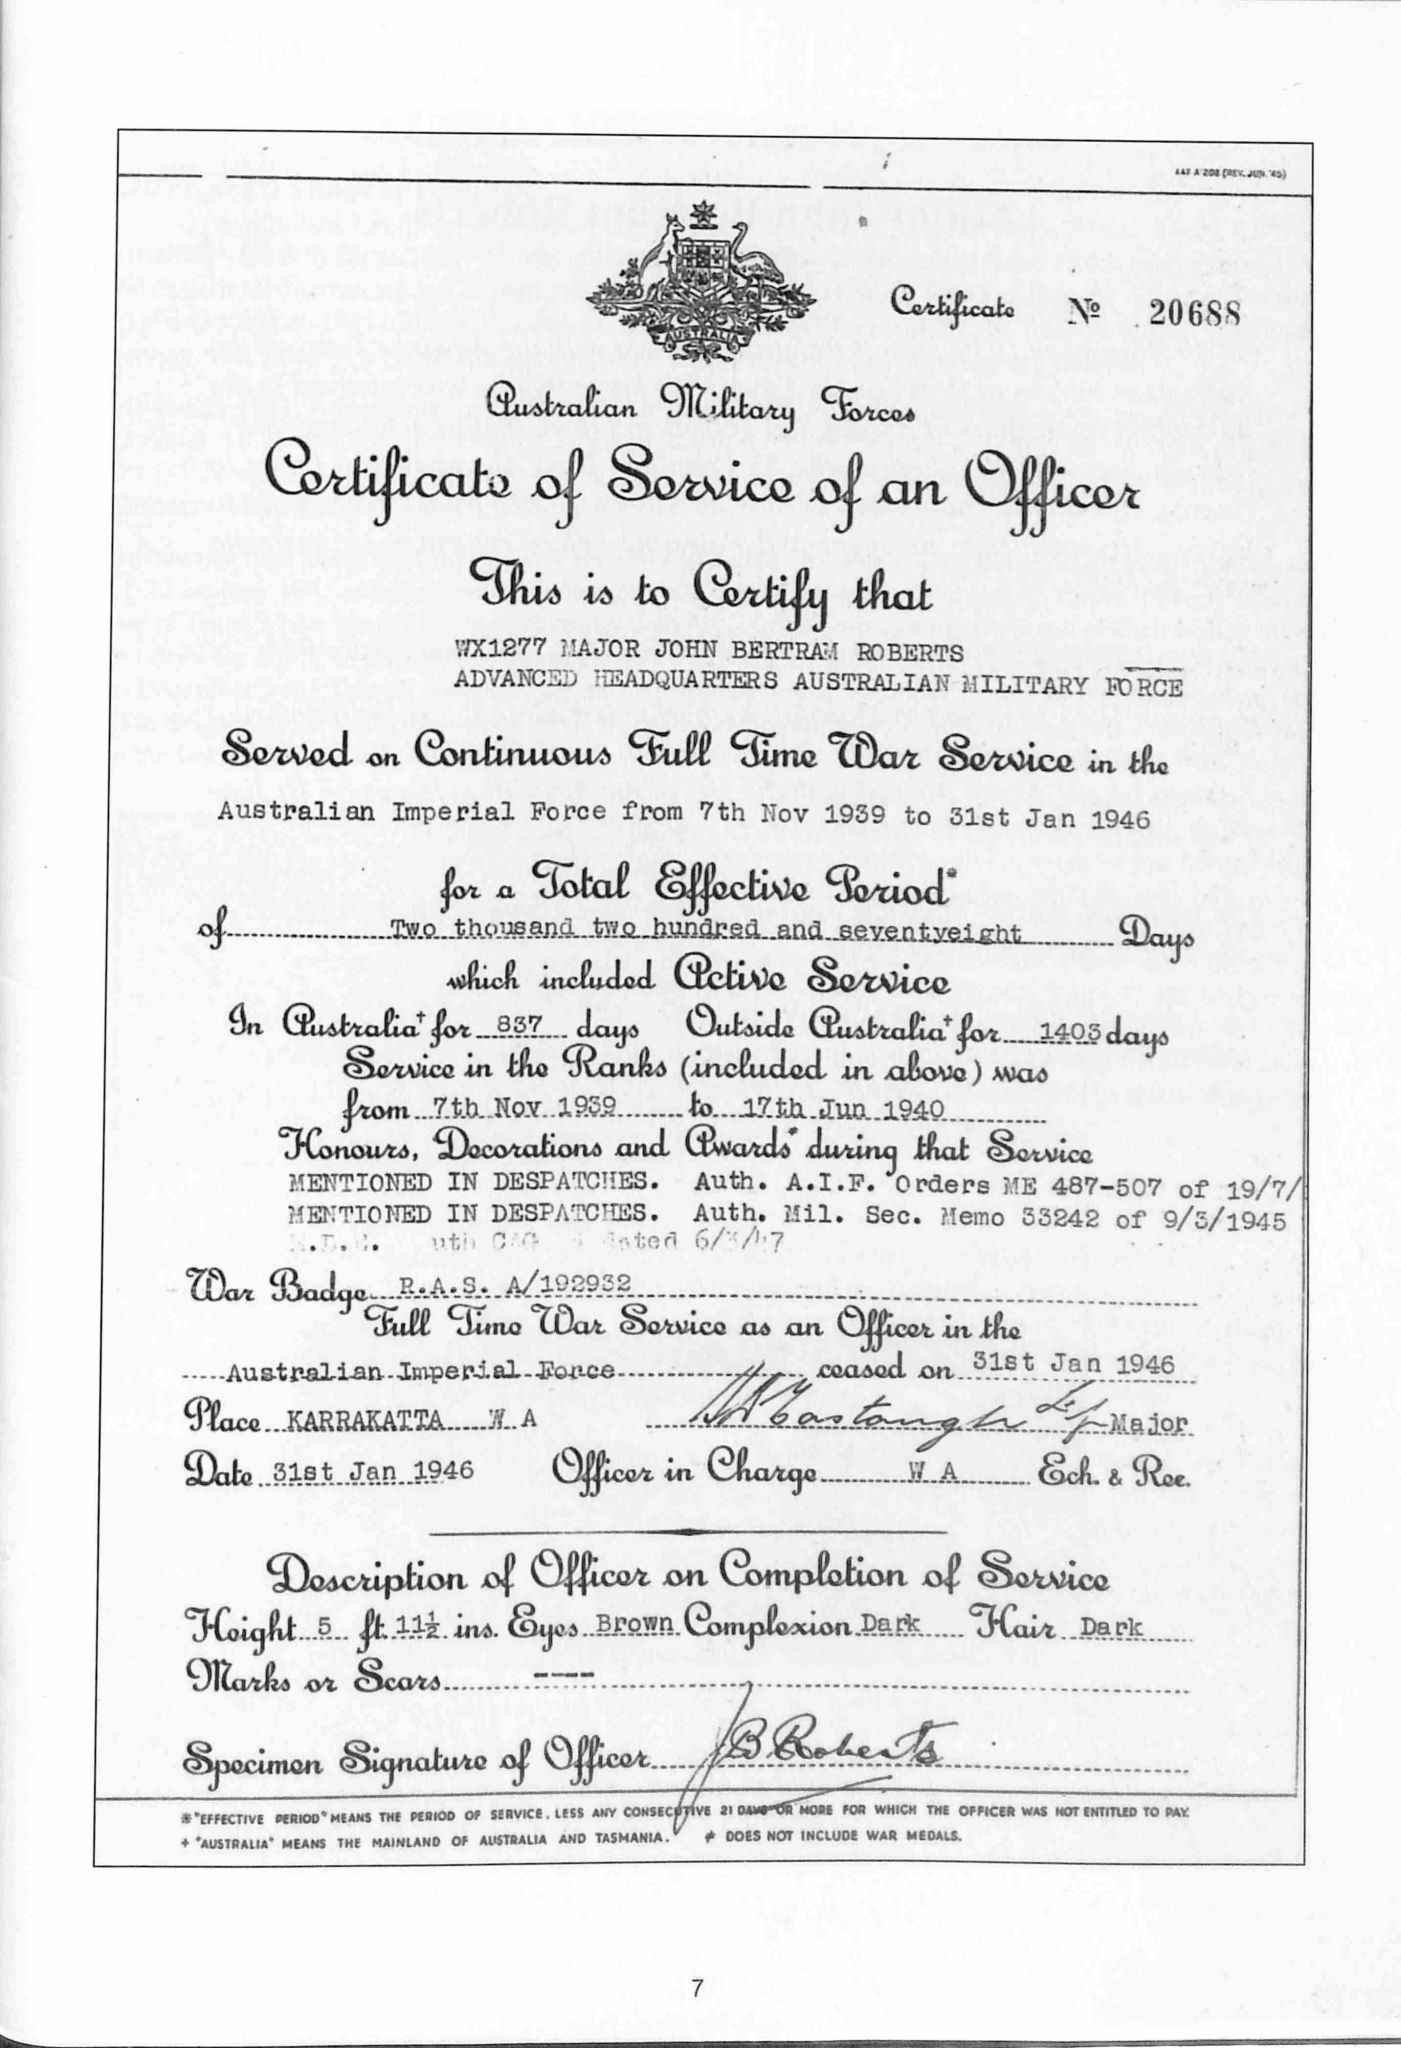 AAF A 208 (REV. JUN. '45)
AUSTRALIA
Certificate No 20688
Australian Military Forces
Certificate of Service of an Officer
This is to Certify that
WX1277 MAJOR JOHN BERTRAM ROBERTS
ADVANCED HEADQUARTERS AUSTRALIAN MILITARY FORCE
Served on Continuous Full Time War Service in the
Australian Imperial Force from 7th Nov 1939 to 31st Jan 1946
for a Total Effective Period*
of Two thousand two hundred and seventyeight Days
which included Active Service
In Australia+ for 837 days Outside Australia+ for 1403 days
Service in the Ranks (included in above) was
from 7th Nov 1939 to 17th Jun 1940
Honours, Decorations and Awards during that Service
MENTIONED IN DESPATCHES. Auth. A.I.F. Orders ME 487-507 of 19/7/
MENTIONED IN DESPATCHES. Auth. Mil. Sec. Memo 33242 of 9/3/1945
War Badge R.A.S. A/192932
Full Time War Service as an Officer in the
Australian Imperial Force ceased on 31st Jan 1946
Place KARRAKATTA W A Major
Date 31st Jan 1946 Officer in Charge W A Ech. & Rec.
Description of Officer on Completion of Service
Height 5 ft. 11½ ins. Eyes Brown Complexion Dark Hair Dark
Marks or Scars ----
Specimen Signature of Officer JB Roberts
* "EFFECTIVE PERIOD" MEANS THE PERIOD OF SERVICE, LESS ANY CONSECUTIVE 21 DAYS OR MORE FOR WHICH THE OFFICER WAS NOT ENTITLED TO PAY.
+ "AUSTRALIA" MEANS THE MAINLAND OF AUSTRALIA AND TASMANIA. ≠ DOES NOT INCLUDE WAR MEDALS.
7